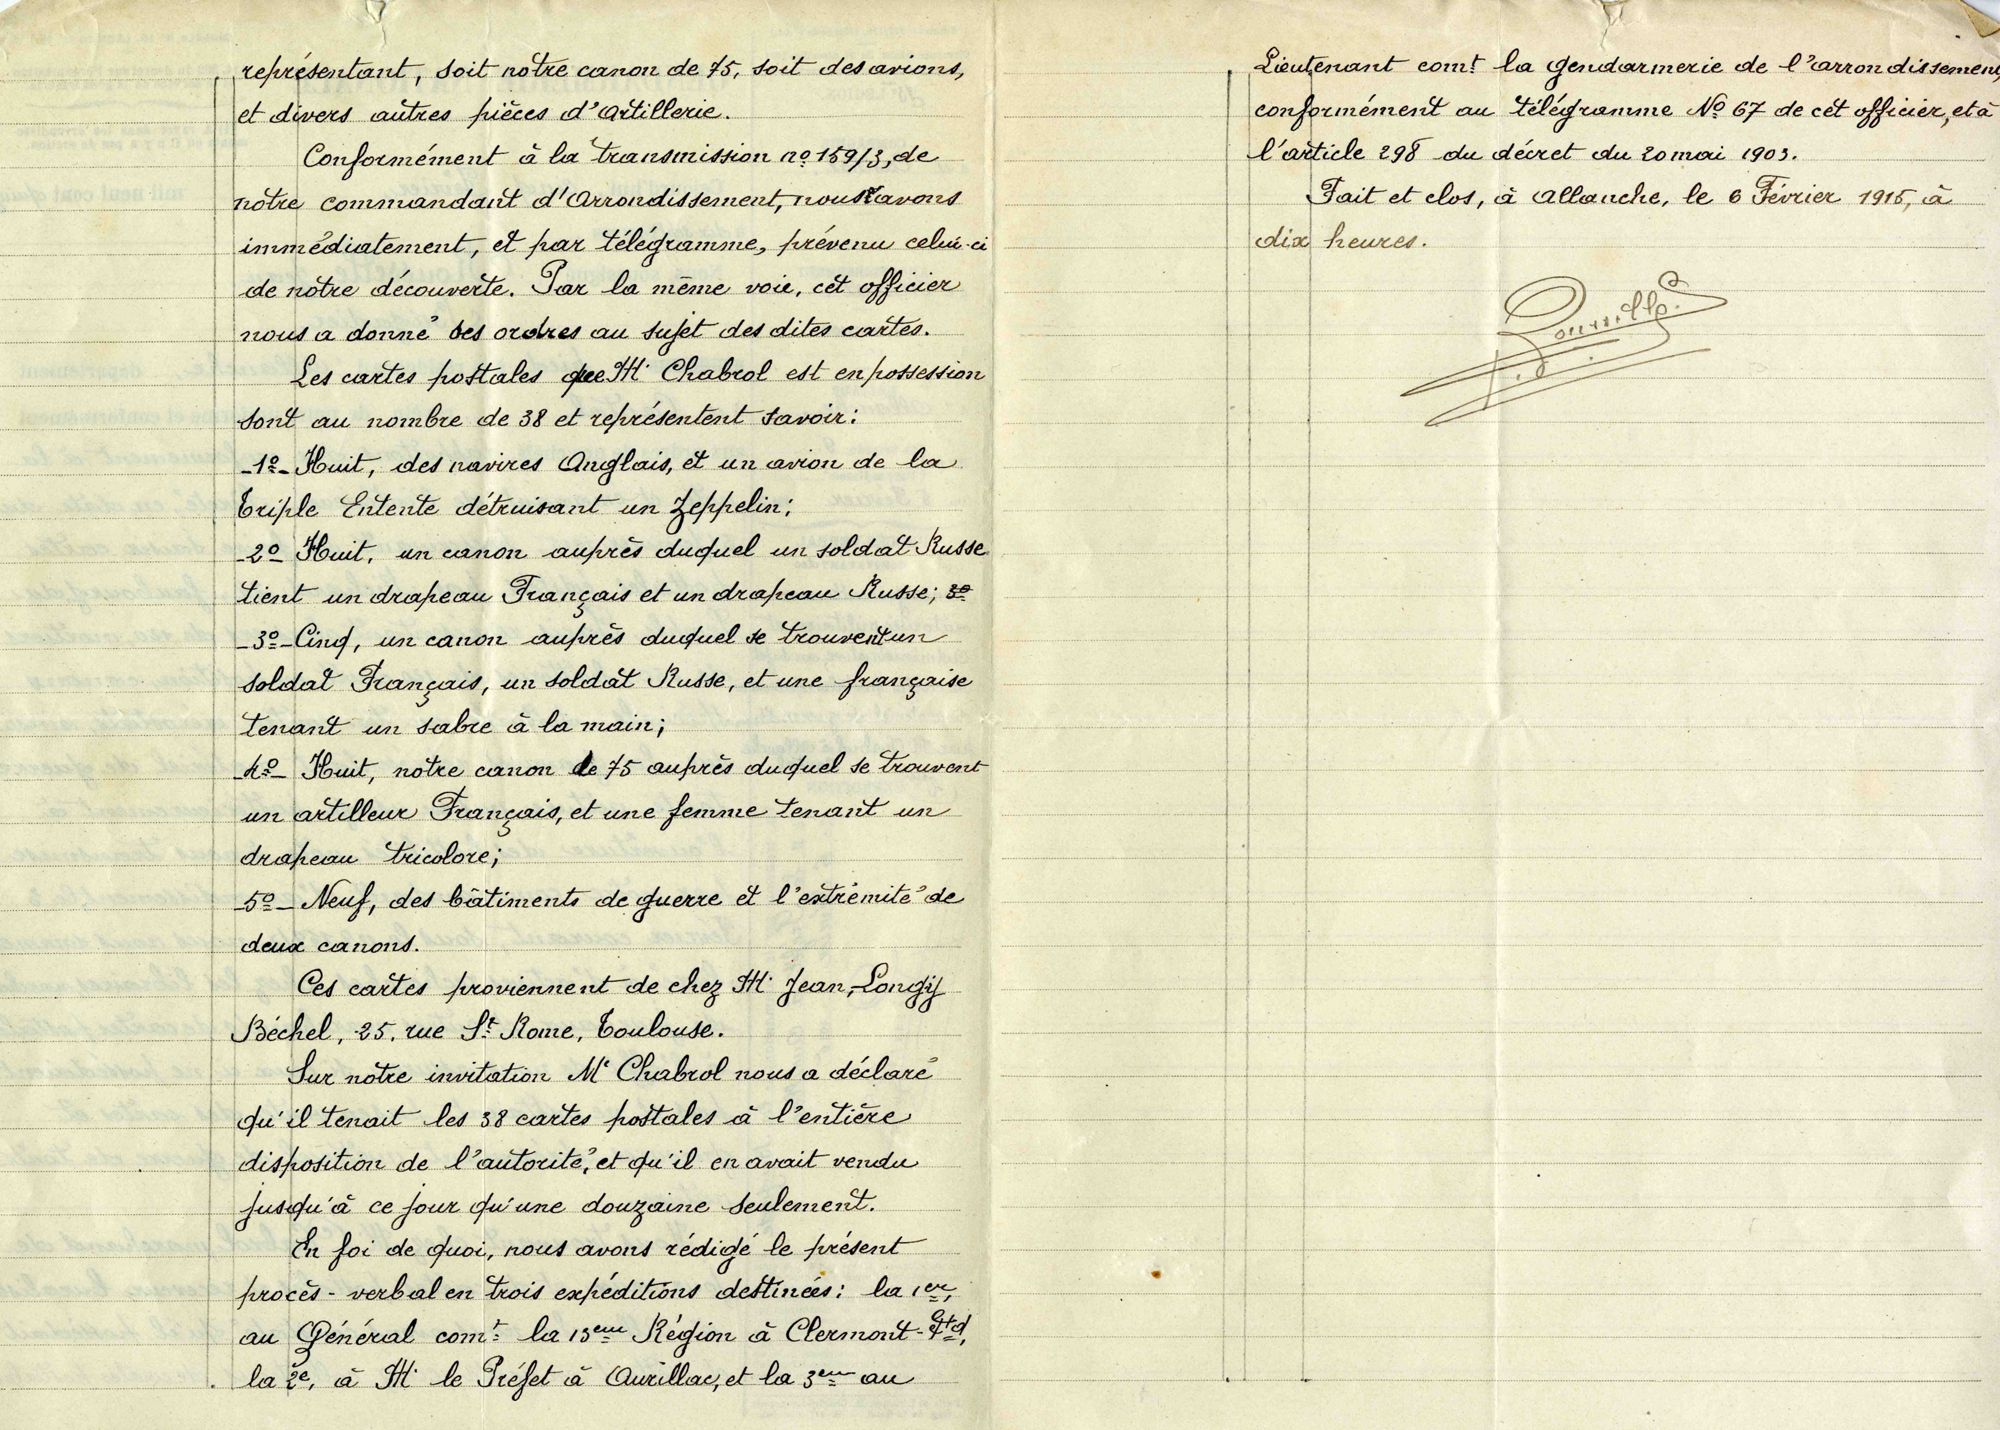 représentant, soit notre canon de 75, soit des avions,
et divers autres pièces d'artillerie.
Conformément à la transmission no 159/3, de
notre commandant d'Arrondissement, nous avons
immédiatement, et par télégramme, prévenu celui-ci
de notre découverte. Par la même voie, cet officier
nous a donné des ordres au sujet des dites cartes.
Les cartes postales que M. Chabrol est en possession
sont au nombre de 38 et représentent savoir:
-1o- Huit, des navires Anglais, et un avion de la
Triple Entente détruisant un Zeppelin;
-2o- Huit, un canon auprès duquel un soldat Russe
tient un drapeau Français et un drapeau Russe; 3o
-3o- Cinq, un canon auprès duquel se trouvent un
soldat Français, un soldat Russe, et une française
tenant un sabre à la main;
-4o- Huit, notre canon de 75 auprès duquel se trouvent
un artilleur Français, et une femme tenant un
drapeau tricolore;
-5o- Neuf, des bâtiments de guerre et l'extrémité de
deux canons.
Ces cartes proviennent de chez M. Jean, Longy
Béchel, 25, rue St Rome, Toulouse.
Sur notre invitation Mr Chabrol nous a déclaré
qu'il tenait les 38 cartes postales à l'entière
disposition de l'autorité, et qu'il en avait vendu
jusqu'à ce jour qu'une douzaine seulement.
En foi de quoi, nous avons rédigé le présent
procès-verbal en trois expéditions destinées: la 1er,
au Général comt la 13eme Région à Clermont-Fd,
la 2e, à M. le Préfet à Aurillac, et la 3eme au
Lieutenant comt la gendarmerie de l'arrondissement,
conformément au télégramme No 67 de cet officier, et à
l'article 298 du décret du 20 mai 1903.
Fait et clos, à Allanche, le 6 Février 1915, à
dix heures.